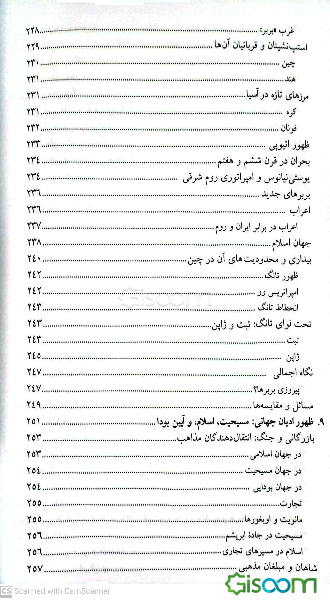 غرب «بربر»........۲۲۸
استپ‌نشینان و قربانیان آن‌ها........۲۲۹
چین........۲۳۰
هند........۲۳۱
مرزهای تازه در آسیا........۲۳۱
کره........۲۳۱
فونان........۲۳۲
ظهور اتیوپی........۲۳۳
بحران در قرن ششم و هفتم........۲۳۴
یوستی‌نیانوس و امپراتوری روم شرقی........۲۳۴
بربرهای جدید........۲۳۶
اعراب........۲۳۶
اعراب در برابر ایران و روم........۲۳۷
جهان اسلام........۲۳۸
بیداری و محدودیت‌های آن در چین........۲۴۰
ظهور تانگ........۲۴۲
امپراتریس وو........۲۴۲
انحطاط تانگ........۲۴۳
تحت لوای تانگ: تبت و ژاپن........۲۴۳
تبت........۲۴۳
ژاپن........۲۴۵
نگاه اجمالی........۲۴۷
پیروزی بربرها؟........۲۴۷
مسائل و مقایسه‌ها........۲۴۹
۹. ظهور ادیان جهانی: مسیحیت، اسلام، و آیین بودا........۲۵۱
بازرگانی و جنگ: انتقال‌دهندگان مذاهب........۲۵۳
در جهان اسلامی........۲۵۳
در جهان مسیحیت........۲۵۴
در جهان بودایی........۲۵۴
تجارت........۲۵۵
مانویت و اویغورها........۲۵۵
مسیحیت در جادهٔ ابریشم........۲۵۶
اسلام در مسیرهای تجاری........۲۵۶
شاهان و مبلغان مذهبی........۲۵۷
Gisoom
CS Scanned with CamScanner
Gisoom.com